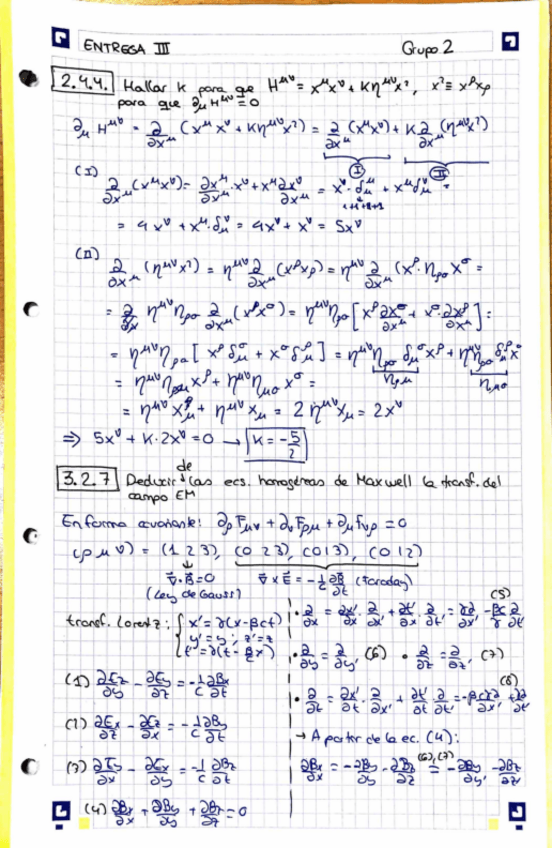 ENTREGA III Grupo 2
2.4.4. Hallar K para que H^{μν} = x^μ x^ν + Kη^{μν}x², x² ≡ x^ρ x_ρ
para que ∂_μ H^{μν} = 0
∂_μ H^{μν} = ∂/∂x^μ (x^μ x^ν + Kη^{μν}x²) = ∂/∂x^μ (x^μ x^ν) + K ∂/∂x^μ (η^{μν}x²)
(I) (II)
(I) ∂/∂x^μ (x^μ x^ν) = ∂x^μ/∂x^μ · x^ν + x^μ ∂x^ν/∂x^μ = x^ν · δ_μ^μ + x^μ δ_μ^ν =
1+1+1+1
= 4x^ν + x^μ · δ_μ^ν = 4x^ν + x^ν = 5x^ν
(II) ∂/∂x^μ (η^{μν}x²) = η^{μν} ∂/∂x^μ (x^ρ x_ρ) = η^{μν} ∂/∂x^μ (x^ρ · η_{ρσ} x^σ) =
= η^{μν} η_{ρσ} ∂/∂x^μ (x^ρ x^σ) = η^{μν} η_{ρσ} [x^ρ ∂x^σ/∂x^μ + x^σ · ∂x^ρ/∂x^μ] =
= η^{μν} η_{ρσ} [x^ρ δ_μ^σ + x^σ δ_μ^ρ] = η^{μν} η_{ρσ} δ_μ^σ x^ρ + η^{μν} η_{ρσ} δ_μ^ρ x^σ
η_{ρμ} η_{μσ}
= η^{μν} η_{ρμ} x^ρ + η^{μν} η_{μσ} x^σ =
= η^{μν} x_μ + η^{μν} x_μ = 2 η^{μν} x_μ = 2x^ν
⇒ 5x^ν + K · 2x^ν = 0 → K = -5/2
3.2.7 Deducir de las ecs. homogéneas de Maxwell la transf. del
campo EM
En forma covariante: ∂_ρ F_{μν} + ∂_ν F_{ρμ} + ∂_μ F_{νρ} = 0
(ρ μ ν) = (1 2 3), (0 2 3), (0 1 3), (0 1 2)
∇·B = 0 ∇ × E = -1/c ∂B/∂t (Faraday)
(Ley de Gauss)
transf. Lorentz: { x' = γ(x-βct)
y' = y ; z' = z
t' = γ(t - β/c x)
(1) ∂Ez/∂y - ∂Ey/∂z = -1/c ∂Bx/∂t
(2) ∂Ex/∂z - ∂Ez/∂x = -1/c ∂By/∂t
(3) ∂Ey/∂x - ∂Ex/∂y = -1/c ∂Bz/∂t
(4) ∂Bx/∂x + ∂By/∂y + ∂Bz/∂z = 0
(5)
· ∂/∂x = ∂x'/∂x · ∂/∂x' + ∂t'/∂x · ∂/∂t' =
· ∂/∂y = ∂/∂y' (6) · ∂/∂z = ∂/∂z' (7)
(8)
· ∂/∂t = ∂x'/∂t · ∂/∂x' + ∂t'/∂t ∂/∂t' = -βcγ ∂/∂x' + γ ∂/∂t'
→ A partir de la ec. (4):
∂Bx/∂x = -∂By/∂y - ∂Bz/∂z (6),(7) = -∂By/∂y' - ∂Bz/∂z'